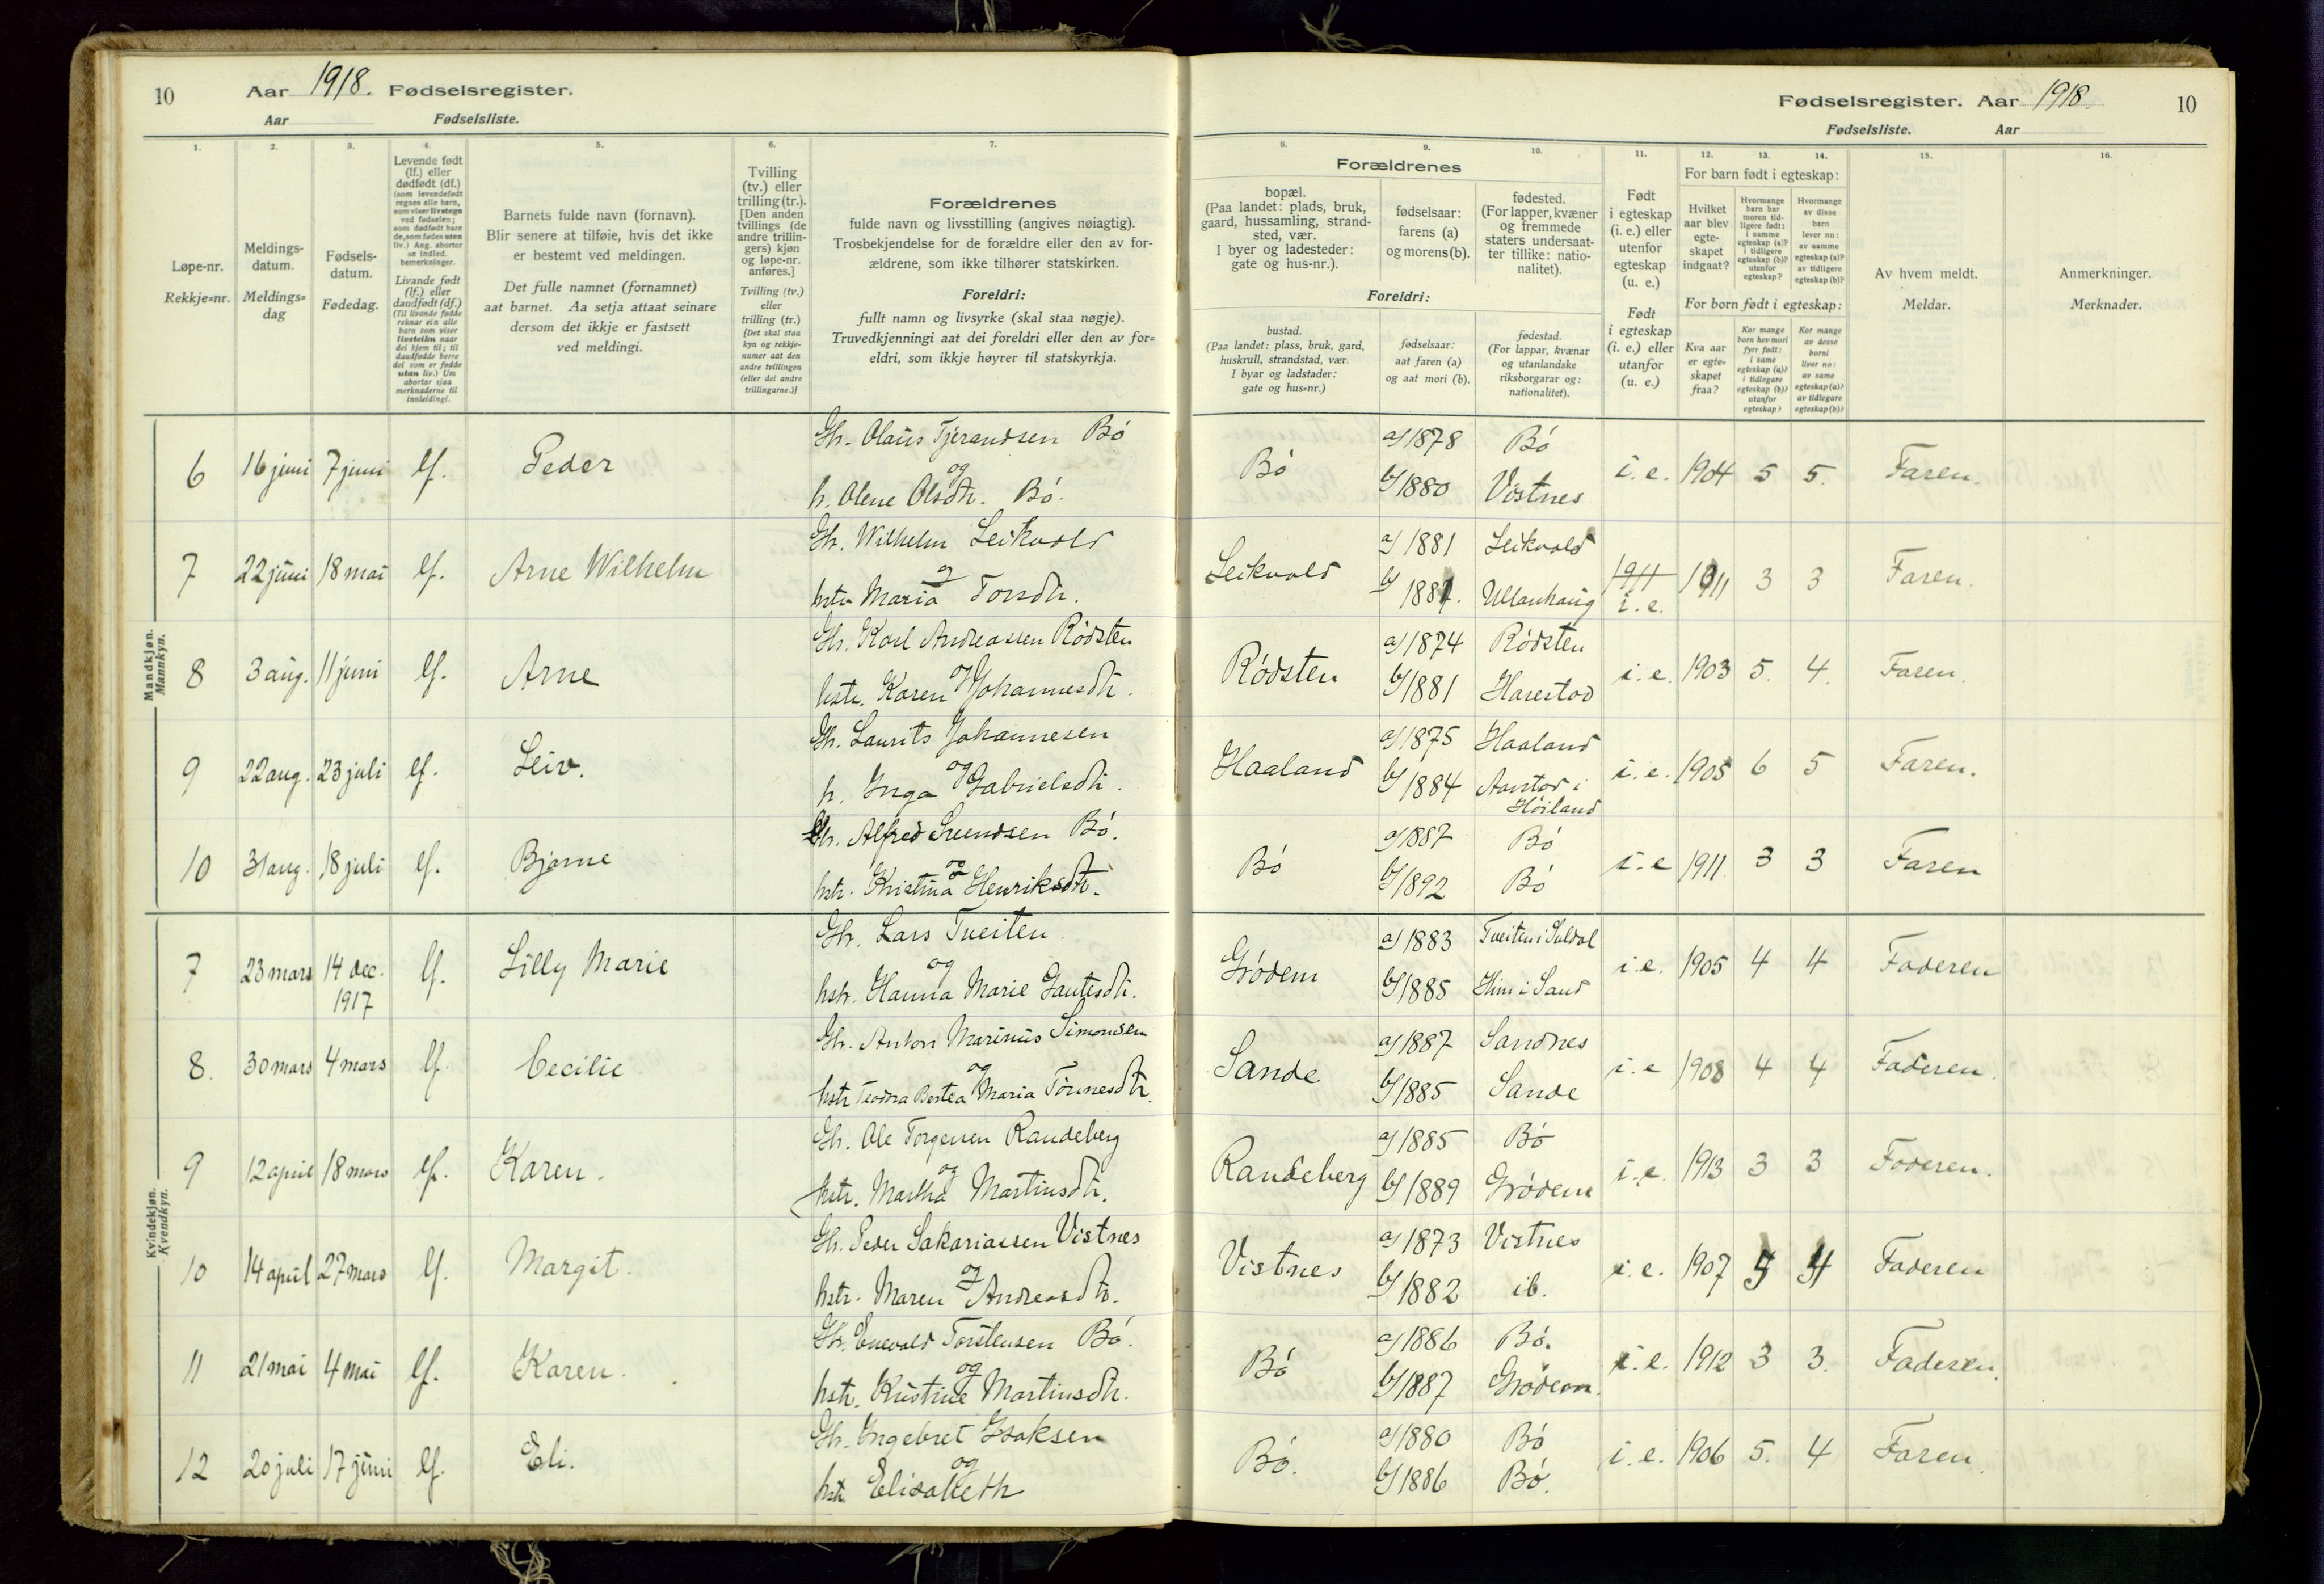 10 Aar 1918. Fødselsregister.
Aar Fødselsliste.
Fødselsregister. Aar 1918. 10
Fødselsliste. Aar
1.
Løpe-nr.
Rekkje=nr.
2.
Meldings-
datum.
Meldings=
dag
3.
Fødsels-
datum.
Fødedag.
4.
Levende født
(lf.) eller
dødfødt (df.)
(som levendefødt
regnes alle barn,
som viser livstegn
ved fødselen;
som dødfødt bare
de, som fødes uten
liv.) Ang. aborter
se indled.
bemerkninger.
Livande født
(lf.) eller
daudfødt (df.)
(Til livande fødde
reknar ein alle
barn som viser
livsteikn naar
dei kjem til; til
daudfødde berre
dei som er fødde
utan liv.) Um
abortar sjaa
merknaderne til
innleidingi.
5.
Barnets fulde navn (fornavn).
Blir senere at tilføie, hvis det ikke
er bestemt ved meldingen.
Det fulle namnet (fornamnet)
aat barnet. Aa setja attaat seinare
dersom det ikkje er fastsett
ved meldingi.
6.
Tvilling
(tv.) eller
trilling (tr.).
[Den anden
tvillings (de
andre trillin-
gers) kjøn
og løpe-nr.
anføres.]
Tvilling (tv.)
eller
trilling (tr.)
[Det skal staa
kyn og rekkje-
numer aat den
andre tvillingen
(eller dei andre
trillingarne.)]
7.
Forældrenes
fulde navn og livsstilling (angives nøiagtig).
Trosbekjendelse for de forældre eller den av for-
ældrene, som ikke tilhører statskirken.
Foreldri:
fullt namn og livsyrke (skal staa nøgje).
Truvedkjenningi aat dei foreldri eller den av for=
eldri, som ikkje høyrer til statskyrkja.
Forældrenes
8.
bopæl.
(Paa landet: plads, bruk,
gaard, hussamling, strand-
sted, vær.
I byer og ladesteder:
gate og hus-nr.).
9.
fødselsaar:
farens (a)
og morens (b).
10.
fødested.
(For lapper, kvæner
og fremmede
staters undersaat-
ter tillike: natio-
nalitet).
Foreldri:
bustad.
(Paa landet: plass, bruk, gard,
huskrull, strandstad, vær.
I byar og ladstader:
gate og hus=nr.)
fødselsaar:
aat faren (a)
og aat mori (b).
fødestad.
(For lappar, kvænar
og utanlandske
riksborgarar og:
nationalitet).
11.
Født
i egteskap
(i. e.) eller
utenfor
egteskap
(u. e.)
Født
i egteskap
(i. e.) eller
utanfor
(u. e.)
For barn født i egteskap:
12.
Hvilket
aar blev
egte-
skapet
indgaat?
13.
Hvormange
barn har
moren tid-
ligere født:
i samme
egteskap (a)?
i tidligere
egteskap (b)?
utenfor
egteskap?
14.
Hvormange
av disse
barn
lever nu:
av samme
egteskap (a)?
av tidligere
egteskap (b)?
For born født i egteskap:
Kva aar
er egte-
skapet
fraa?
Kor mange
born hev mori
fyrr født:
i same
egteskap (a)?
i tidlegare
egteskap (b)?
utanfor
egteskap?
Kor mange
av desse
borni
liver no:
av same
egteskap (a)?
av tidlegare
egteskap (b)?
15.
Av hvem meldt.
Meldar.
16.
Anmerkninger.
Merknader.
Mandkjøn.
Mannkyn.
6 16 juni 7 juni lf. Peder Gbr. Olaus Tjerandsen Bö
og
h. Olene Olsdtr. Bö.
Bö a/ 1878 Bö
b/ 1880 Vistnes
i. e. 1904 5 5. Faren.
7 22 juni 18 mai lf. Arne Wilhelm Gbr. Wilhelm Leikvold
og
hstr Maria Torsdtr.
Leikvold a/ 1881 Leikvold
b/ 1887. Ullenhaug
1911
i. e. 1911 3 3 Faren.
8 3 aug. 11 juni lf. Arne Gbr. Karl Andreassen Rödsten
og
hstr. Karen Johannesdtr.
Rödsten a/ 1874 Rödsten
b/ 1881 Harestad
i. e. 1903 5. 4. Faren.
9 22 aug. 23 juli lf. Leiv. Gbr. Laurits Johannesen
og
h. Inga Gabrielsdtr.
Haaland a/ 1875 Haaland
b/ 1884 Aarstad i
Höiland
i. e. 1905 6 5 Faren.
10 31 aug. 18 juli lf. Bjarne Gbr. Alfred Svendsen Bö.
og
hstr. Kristina Henriksdtr.
Bö a/ 1887 Bö
b/ 1892 Bö
i. e 1911. 3 3 Faren
Kvindekjøn.
Kvendkyn.
7 23 mars 14 dec.
1917
lf. Lilly Marie Gbr. Lars Tveiten
og
hstr. Hanna Marie Gautesdtr.
Grödem a/ 1883 Tveiten i Suldal
b/ 1885 Hiim i Sand
i. e. 1905 4 4 Faderen
8. 30 mars 4 mars lf. Cecilie Gbr. Anton Marinius Simonsen
og
hstr Teodora Bertea Maria Tönnesdtr.
Sande a/ 1887 Sandnes
b/ 1885 Sande
i. e 1908 4 4 Faderen.
9 12 april 18 mars lf. Karen. Gbr. Ole Torgersen Randeberg
og
hstr. Martha Martinsdtr.
Randeberg a/ 1885 Bö
b/ 1889 Grödem
i. e. 1913 3 3 Faderen.
10 14 april 27 mars lf. Margit. Gbr. Peder Sakariassen Vistnes
og
hstr. Maren Andreasdtr.
Vistnes a/ 1873 Vistnes
b/ 1882 ib.
i. e. 1907 4 Faderen
11 21 mai 4 mai lf. Karen. Gbr. Enevald Torstensen Bö.
og
hstr. Kristine Martinsdtr.
Bö a/ 1886 Bö.
b/ 1887 Grödem.
i. e. 1912 3 3. Faderen.
12 20 juli 17 juni lf. Eli. Gbr. Ingebret Isaksen
og
hstr. Elisabeth
Bö. a/ 1880 Bö
b/ 1886 Bö.
i. e. 1906 5. 4 Faren.